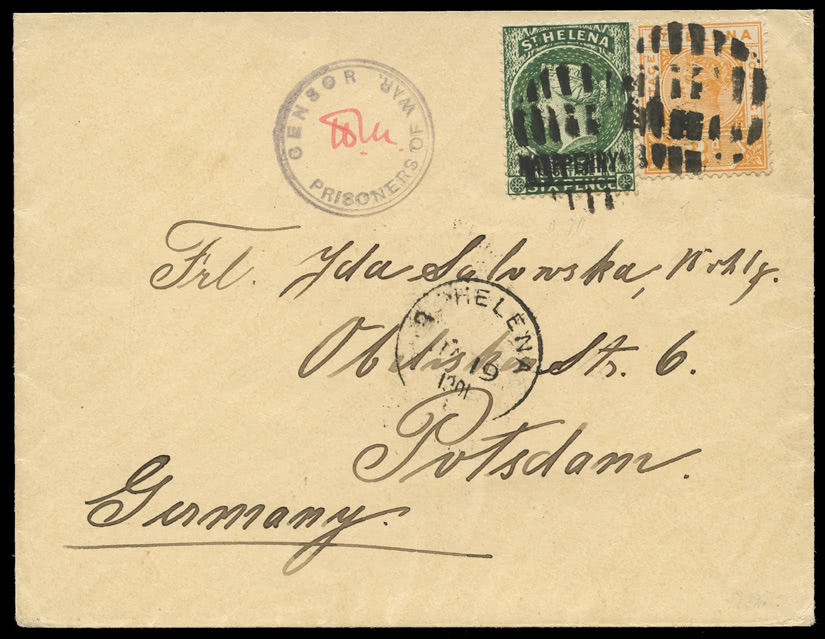 CENSOR
PRISONERS OF WAR.
ST HELENA
HALFPENNY
SIX PENCE
ST HELENA
POSTAGE
Frl. Ida Salowska, Wohlg.
ST HELENA
19
1901
Str. 6.
Potsdam.
Germany.